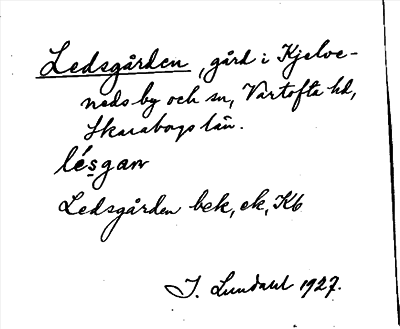 Ledsgården, gård i Kjelve-
neds by och sn, Vartofta hd,
Skaraborgs län.
lésgan
Ledsgården bek, ek, Kb
I. Lundahl 1927.